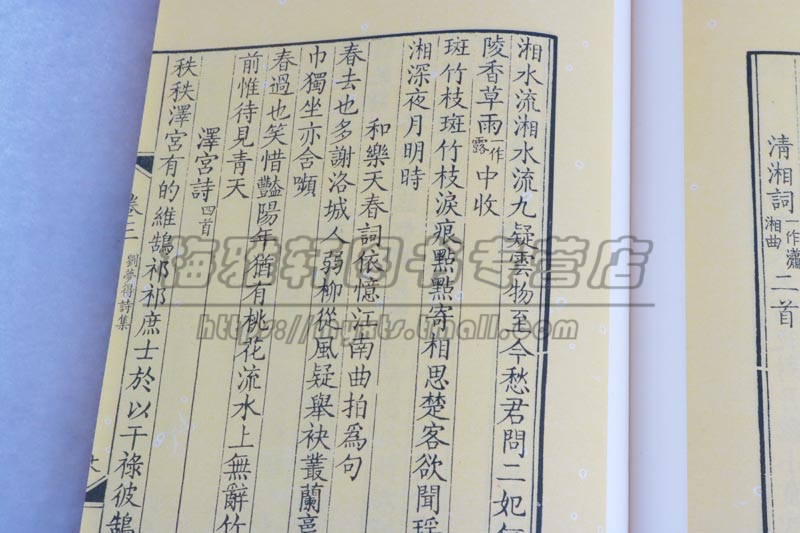 清湘詞一作瀟湘曲二首
湘水流湘水流九疑雲物至今愁君問二妃
陵香草雨一作露中收
斑竹枝斑竹枝淚痕點點寄相思楚客欲聞瑤
湘深夜月明時
和樂天春詞依憶江南曲拍為句
春去也多謝洛城人弱柳從風疑舉袂叢蘭裛
巾獨坐亦含嚬
春過也笑惜豔陽年猶有桃花流水上無辭竹
前惟待見青天
澤宮詩四首
秩秩澤宮有的維鵠祁祁庶士於以干祿彼鵠
卷二 劉夢得詩集
海雅轩图书专营店
tmall.com